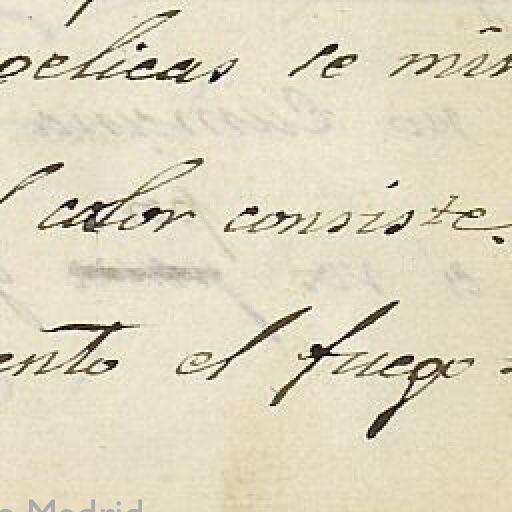 gelicas se mi
l calor consiste.
ento el fuego
Madrid